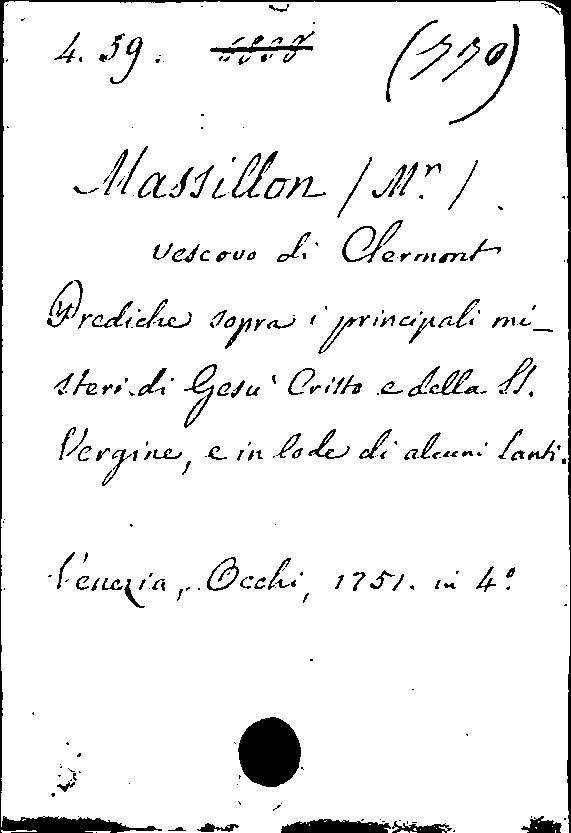 4. 39. (330)
Massillon (Mr.)
vescovo di Clermont
Prediche sopra i principali mi-
steri di Gesù Cristo e della SS.
Vergine, e in lode di alcuni Santi.
Venezia, Occhi, 1751. in 4º.